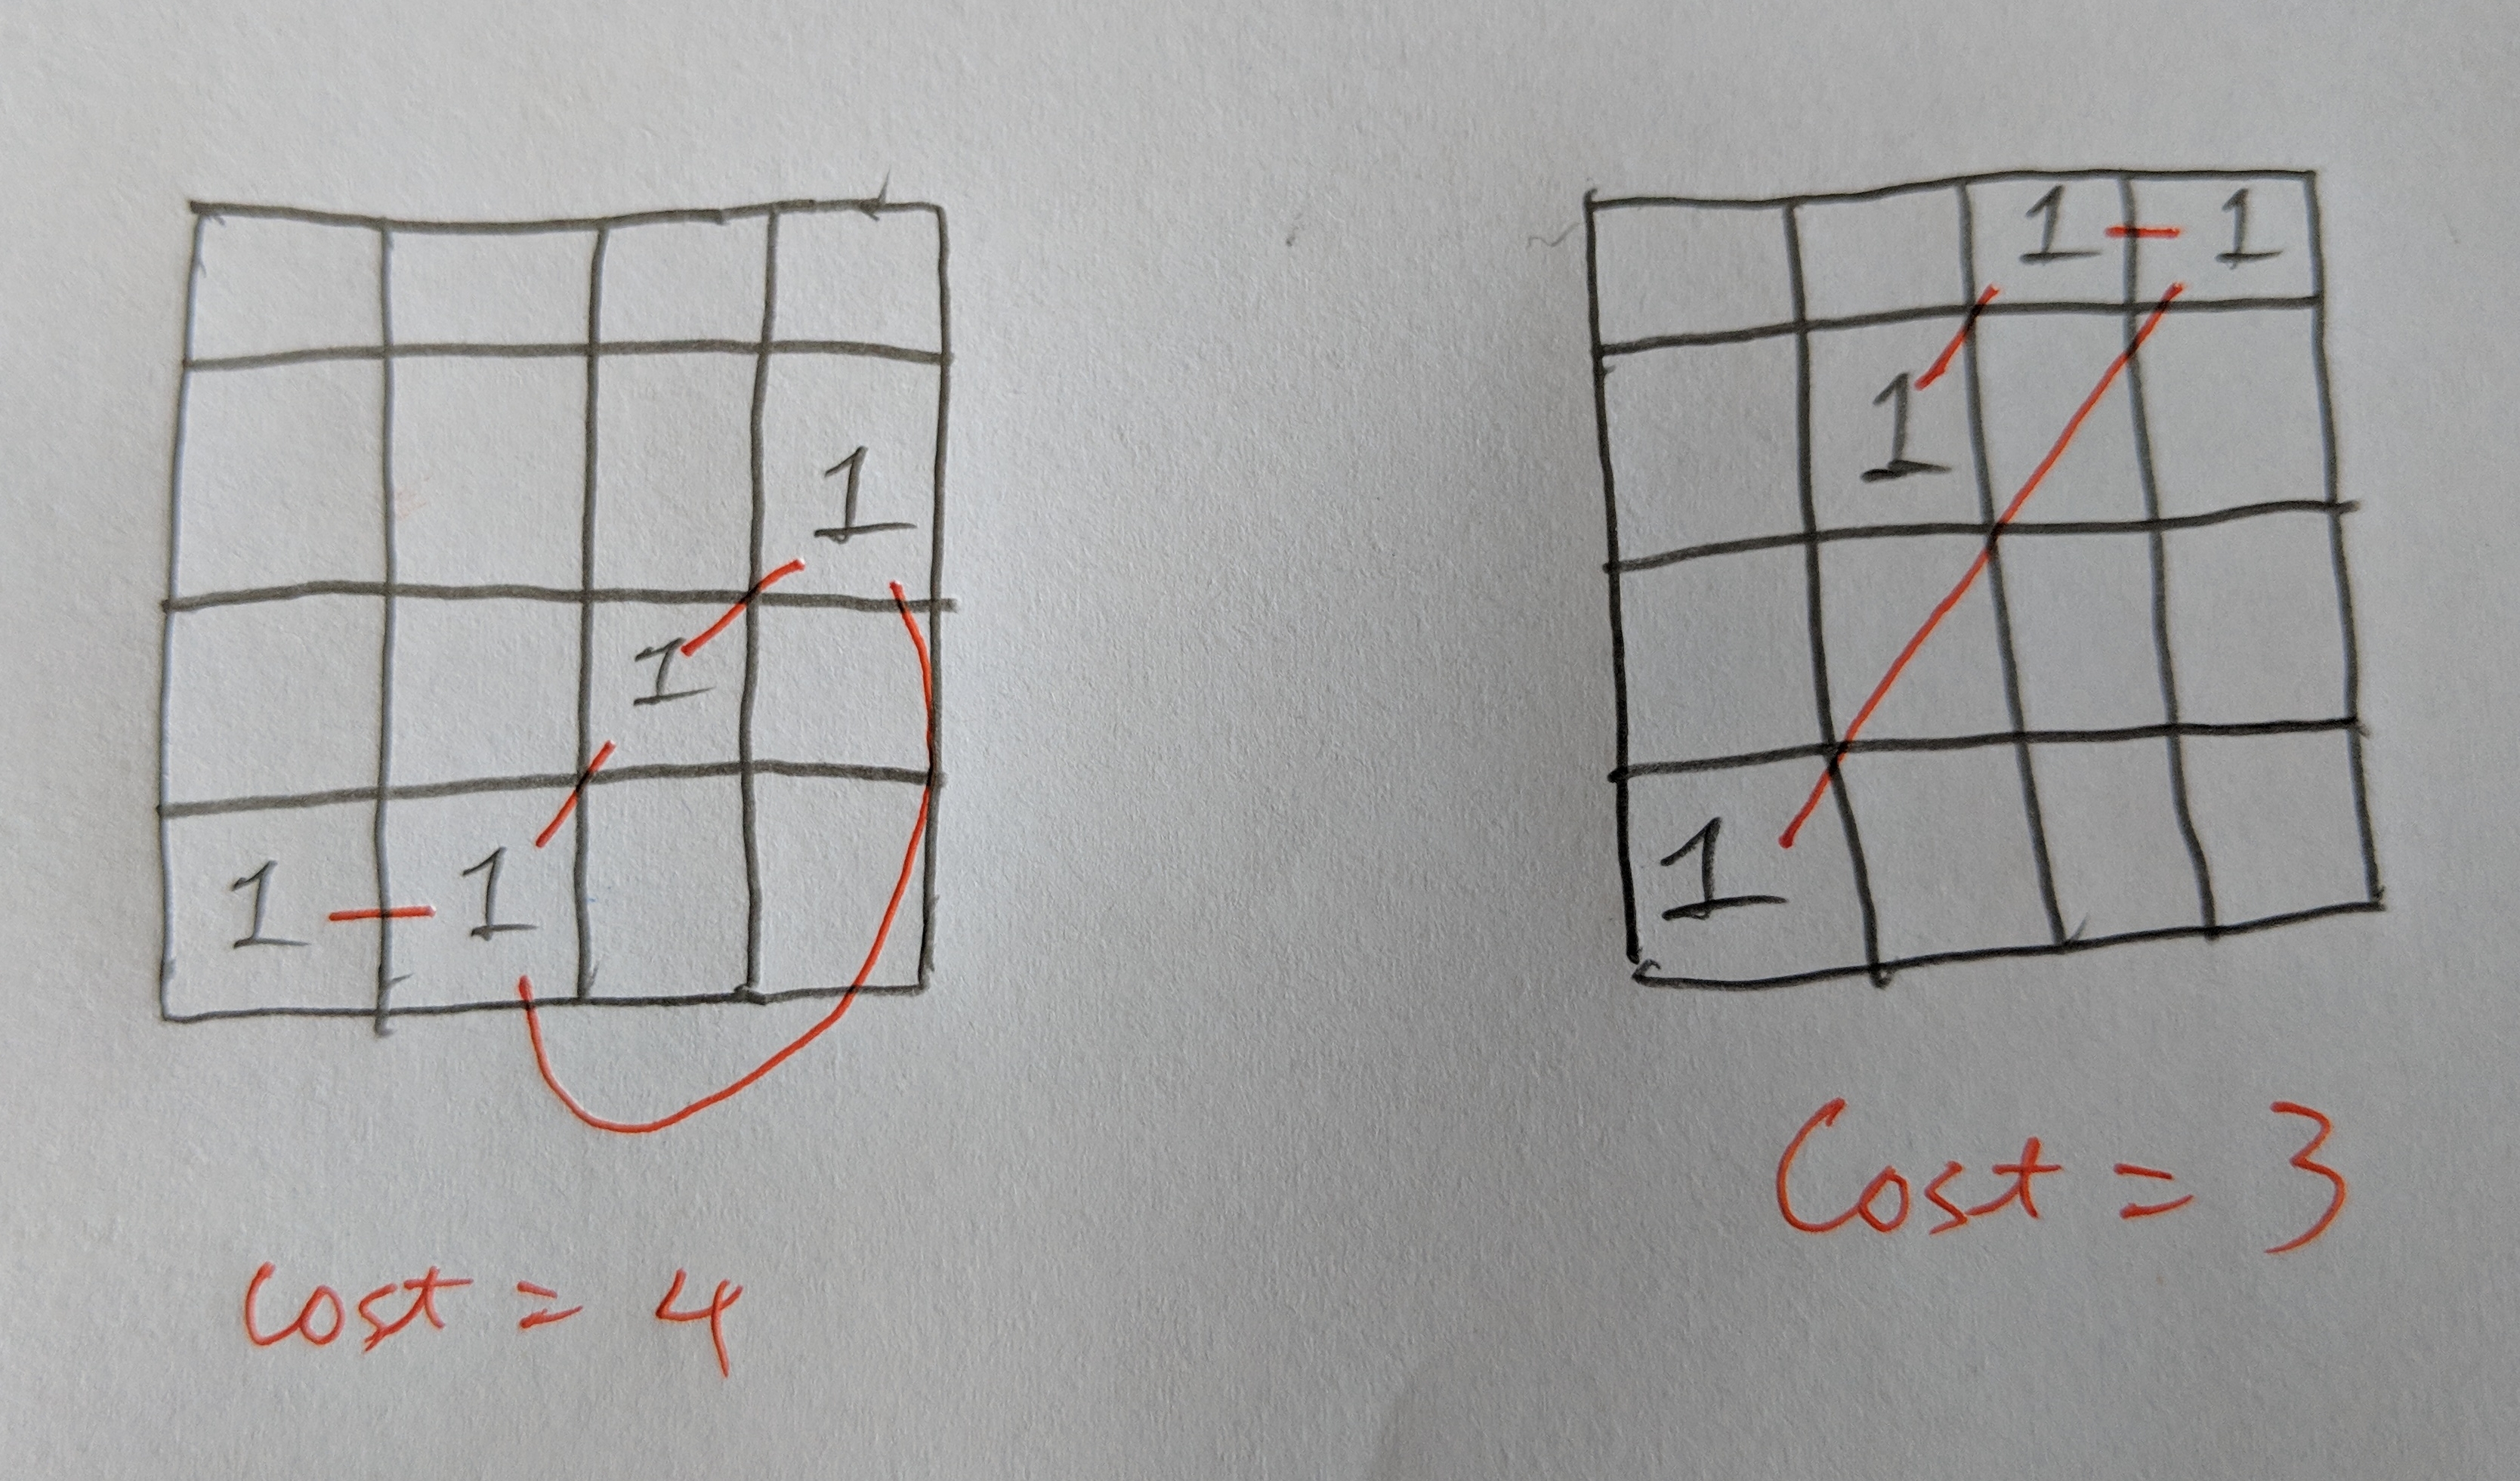 1
1
1 1
Cost = 4
1 1
1
1
Cost = 3